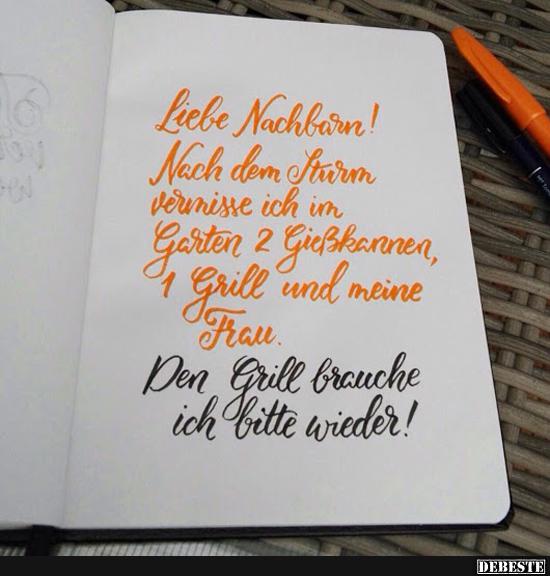 Liebe Nachbarn!
Nach dem Sturm
vermisse ich im
Garten 2 Gießkannen,
1 Grill und meine
Frau.
Den Grill brauche
ich bitte wieder!
DEBESTE